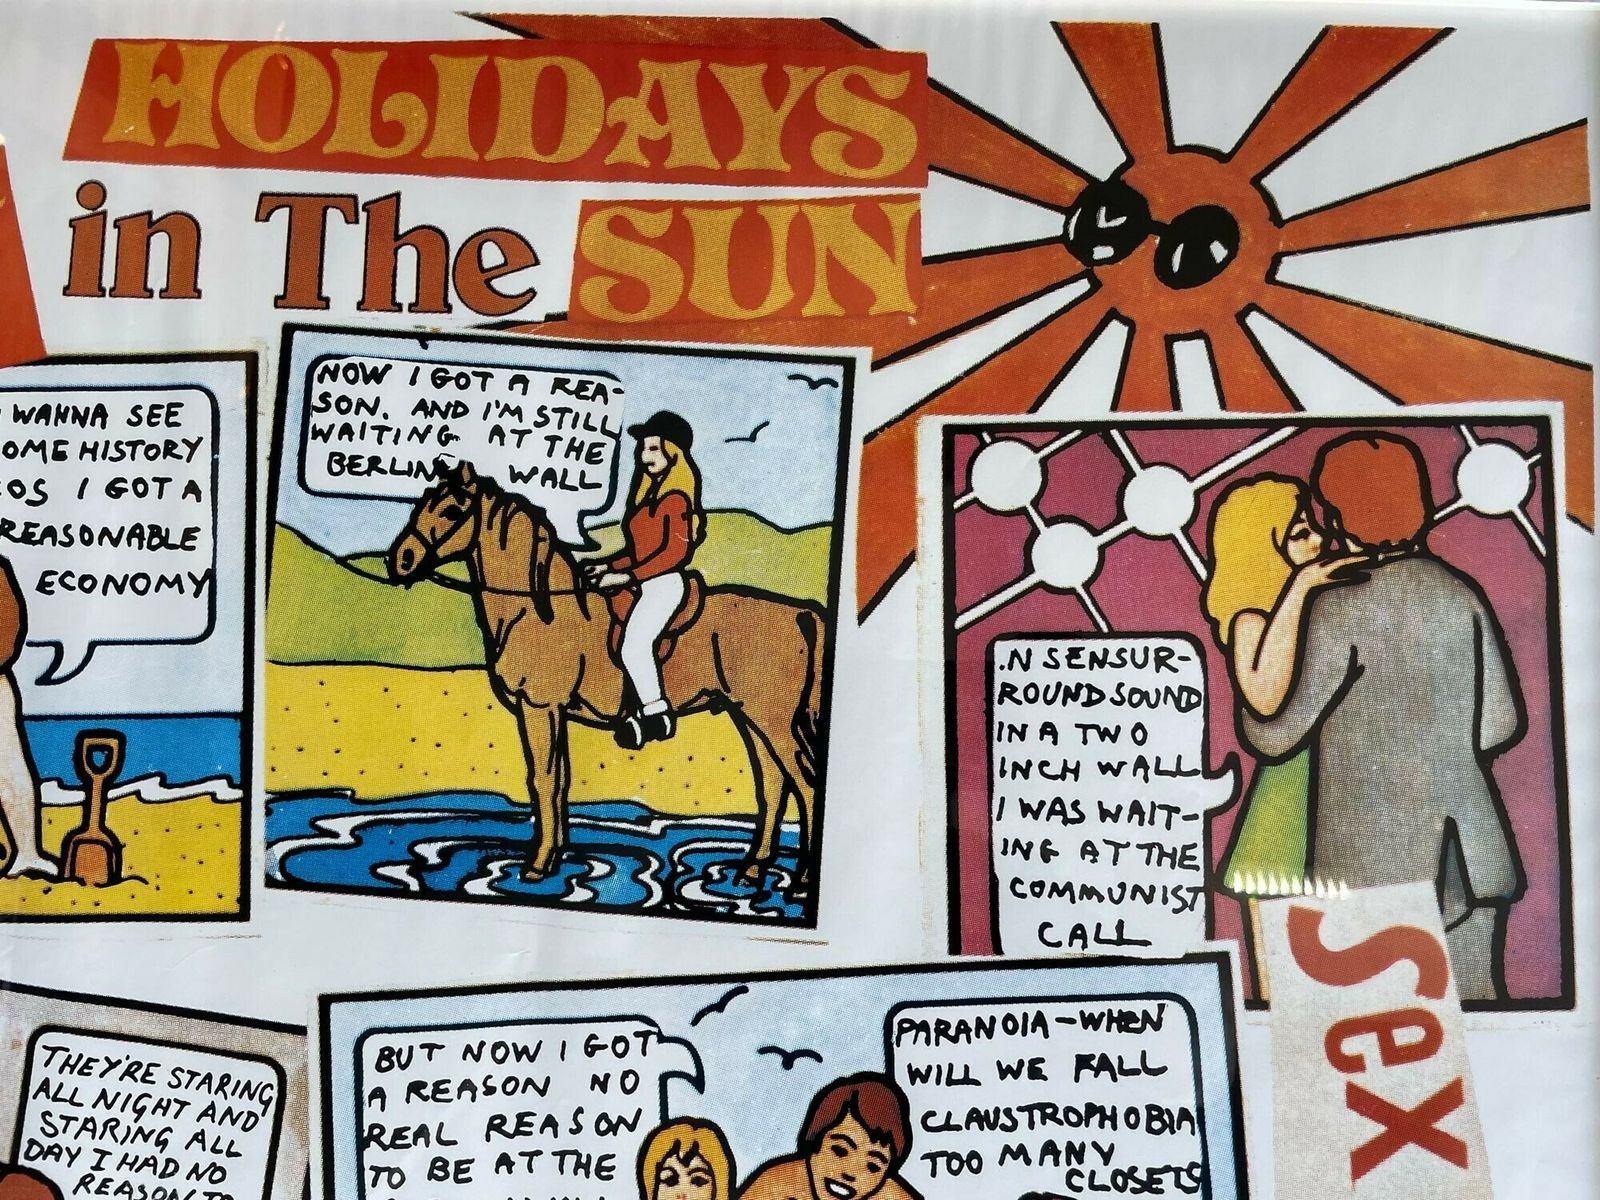 HOLIDAYS
in The SUN
WANNA SEE
OME HISTORY
I GOT A
REASONABLE
ECONOMY
NOW I GOT A REA-
SON. AND I'M STILL
WAITING AT THE
BERLIN WALL
.N SENSUR-
ROUND SOUND
IN A TWO
INCH WALL
I WAS WAIT-
ING AT THE
COMMUNIST
CALL
Sex
THEY'RE STARING
ALL NIGHT AND
STARING ALL
DAY I HAD NO
REASON TO
BUT NOW I GOT
A REASON NO
REAL REASON
TO BE AT THE
PARANOIA-WHEN
WILL WE FALL
CLAUSTROPHOBIA
TOO MANY
CLOSETS